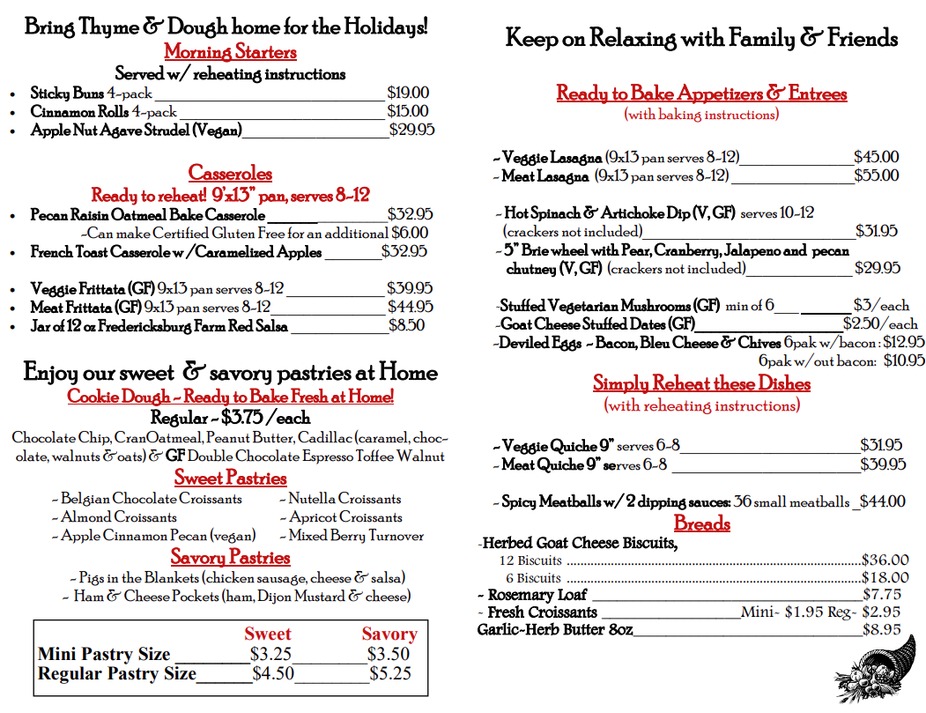 Bring Thyme & Dough home for the Holidays!
Morning Starters
Served w/ reheating instructions
• Sticky Buns 4-pack ______ $19.00
• Cinnamon Rolls 4-pack ______ $15.00
• Apple Nut Agave Strudel (Vegan)______$29.95
Casseroles
Ready to reheat! 9'x13" pan, serves 8-12
• Pecan Raisin Oatmeal Bake Casserole ______$32.95
~Can make Certified Gluten Free for an additional $6.00
• French Toast Casserole w /Caramelized Apples ______$32.95
• Veggie Frittata (GF) 9x13 pan serves 8-12 ______ $39.95
• Meat Frittata (GF) 9x13 pan serves 8-12______ $44.95
• Jar of 12 oz Fredericksburg Farm Red Salsa ______ $8.50
Enjoy our sweet & savory pastries at Home
Cookie Dough ~ Ready to Bake Fresh at Home!
Regular ~ $3.75 /each
Chocolate Chip, CranOatmeal, Peanut Butter, Cadillac (caramel, choc-
olate, walnuts &oats) & GF Double Chocolate Espresso Toffee Walnut
Sweet Pastries
~ Belgian Chocolate Croissants ~ Nutella Croissants
~ Almond Croissants ~ Apricot Croissants
~ Apple Cinnamon Pecan (vegan) ~ Mixed Berry Turnover
Savory Pastries
~ Pigs in the Blankets (chicken sausage, cheese & salsa)
~ Ham & Cheese Pockets (ham, Dijon Mustard & cheese)
Sweet Savory
Mini Pastry Size ______$3.25______$3.50
Regular Pastry Size______$4.50______$5.25
Keep on Relaxing with Family & Friends
Ready to Bake Appetizers & Entrees
(with baking instructions)
~ Veggie Lasagna (9x13 pan serves 8-12)______$45.00
~ Meat Lasagna (9x13 pan serves 8-12) ______$55.00
~ Hot Spinach & Artichoke Dip (V, GF) serves 10-12
(crackers not included)______$31.95
~ 5" Brie wheel with Pear, Cranberry, Jalapeno and pecan
chutney (V, GF) (crackers not included)______ $29.95
~Stuffed Vegetarian Mushrooms (GF) min of 6___ ______ $3/each
~Goat Cheese Stuffed Dates (GF)______$2.50/each
~Deviled Eggs ~ Bacon, Bleu Cheese & Chives 6pak w/bacon : $12.95
6pak w/out bacon: $10.95
Simply Reheat these Dishes
(with reheating instructions)
~ Veggie Quiche 9" serves 6-8______$31.95
~ Meat Quiche 9" serves 6-8 ______$39.95
~ Spicy Meatballs w/ 2 dipping sauces: 36 small meatballs _$44.00
Breads
~Herbed Goat Cheese Biscuits,
12 Biscuits ......$36.00
6 Biscuits ......$18.00
~ Rosemary Loaf ______$7.75
~ Fresh Croissants ______Mini~ $1.95 Reg~ $2.95
Garlic-Herb Butter 8oz______$8.95